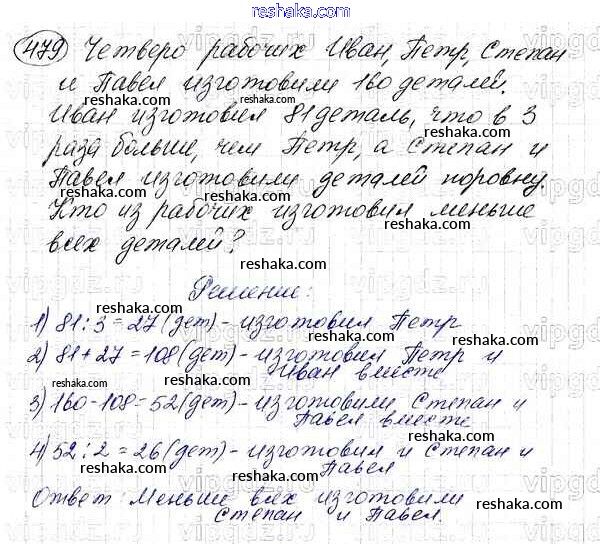 reshaka.com
479 Четверо рабочих Иван, Петр, Степан
и Павел изготовили 160 деталей.
reshaka.com
Иван изготовил 81 деталь, что в 3
reshaka.com
раза больше, чем Петр, а Степан и
reshaka.com
Павел изготовили деталей поровну.
reshaka.com
Кто из рабочих изготовил меньше
reshaka.com
всех деталей?
reshaka.com
Решение:
reshaka.com
1) 81:3=27(дет)-изготовил Петр
reshaka.com
2) 81+27=108(дет)-изготовил Петр и
Иван вместе
reshaka.com
3) 160-108=52(дет)-изготовили Степан и
Павел вместе
reshaka.com
4) 52:2=26(дет)-изготовил и Степан и
Павел
reshaka.com
Ответ: Меньше всех изготовили
Степан и Павел.
reshaka.com
vipgdz.ru